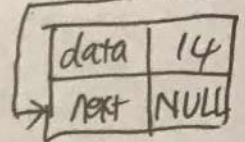 data 14
next NULL